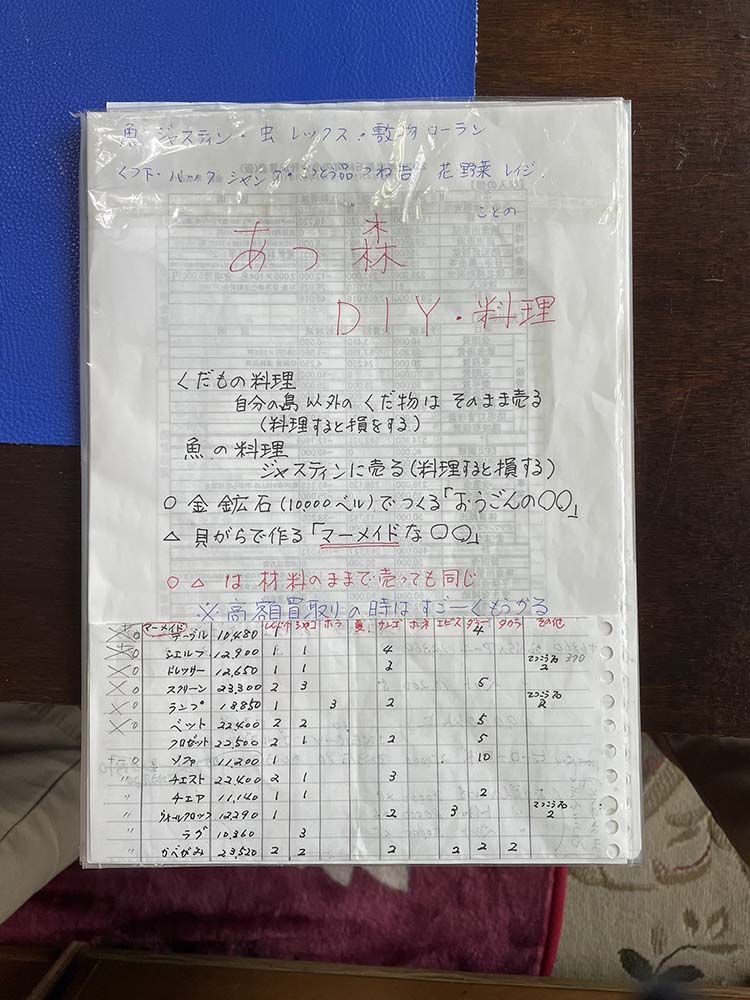 魚 ジャスティン・虫 レックス・敷物 ローラン
くつ下・バック シャンク・こっとう品 つね吉 花 野菜 レイジ
ことの
あつ森
DIY・料理
くだもの料理
自分の島以外のくだ物はそのまま売る
(料理すると損をする)
魚の料理
ジャスティンに売る(料理すると損する)
○ 金鉱石(10,000ベル)でつくる「おうごんの○○」
△ 貝がらで作る「マーメイドな○○」
○△は材料のままで売っても同じ
※高額買取りの時はすごーくもうかる
マーメイド シャコ ホラ 夏 サンゴ ホネ エビス タカラ その他
テーブル 10,480 1 4
シェルフ 12,900 1 1 4
ドレッサー 12,650 1 1 2 てっこうせき 2 370
スクリーン 23,300 2 3 5
ランプ 13,850 1 3 2 てっこうせき 2
ベット 22,400 2 2 5
クロゼット 22,500 2 1 2 5
ソファ 11,200 1 10
〃 チェスト 22,400 2 1 3
〃 チェア 11,140 1 1 2
〃 ウォールクロック 12,290 1 2 3 てっこうせき 2
〃 ラグ 10,360 3
〃 かべがみ 23,520 2 2 2 2 2 2